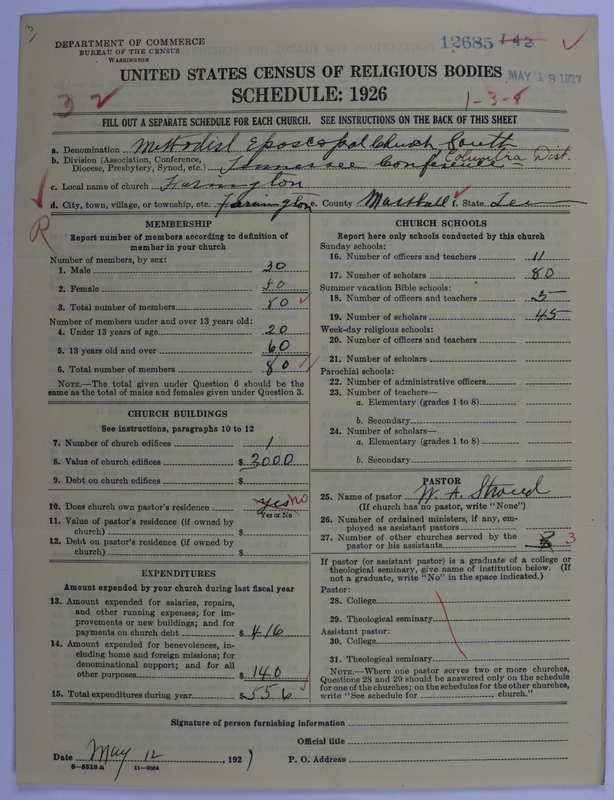 DEPARTMENT OF COMMERCE
BUREAU OF THE CENSUS
WASHINGTON
12685 142
MAY 18 1927
UNITED STATES CENSUS OF RELIGIOUS BODIES
SCHEDULE: 1926
1-3-4
FILL OUT A SEPARATE SCHEDULE FOR EACH CHURCH. SEE INSTRUCTIONS ON THE BACK OF THIS SHEET
a. Denomination Methodist Episcopal Church South
b. Division (Association, Conference, Diocese, Presbytery, Synod, etc.) Tennessee Conference - Columbia Dist.
c. Local name of church Farmington
d. City, town, village, or township, etc. Farmington e. County Marshall f. State Ten
R
MEMBERSHIP
Report number of members according to definition of
member in your church
Number of members, by sex:
1. Male 30
2. Female 50
3. Total number of members 80
Number of members under and over 13 years old:
4. Under 13 years of age 20
5. 13 years old and over 60
6. Total number of members 80
NOTE.—The total given under Question 6 should be the
same as the total of males and females given under Question 3.
CHURCH BUILDINGS
See instructions, paragraphs 10 to 12
7. Number of church edifices 1
8. Value of church edifices $ 3000
9. Debt on church edifices $
10. Does church own pastor's residence yes no
Yes or No
11. Value of pastor's residence (if owned by
church) $
12. Debt on pastor's residence (if owned by
church) $
EXPENDITURES
Amount expended by your church during last fiscal year
13. Amount expended for salaries, repairs,
and other running expenses; for im-
provements or new buildings; and for
payments on church debt $ 416
14. Amount expended for benevolences, in-
cluding home and foreign missions; for
denominational support; and for all
other purposes 140
15. Total expenditures during year $ 556
CHURCH SCHOOLS
Report here only schools conducted by this church
Sunday schools:
16. Number of officers and teachers 11
17. Number of scholars 80
Summer vacation Bible schools:
18. Number of officers and teachers 5
19. Number of scholars 45
Week-day religious schools:
20. Number of officers and teachers
21. Number of scholars
Parochial schools:
22. Number of administrative officers
23. Number of teachers—
a. Elementary (grades 1 to 8)
b. Secondary
24. Number of scholars—
a. Elementary (grades 1 to 8)
b. Secondary
PASTOR
25. Name of pastor W. A. Stroud
(If church has no pastor, write "None")
26. Number of ordained ministers, if any, em-
ployed as assistant pastors
27. Number of other churches served by the
pastor or his assistants 3
If pastor (or assistant pastor) is a graduate of a college or
theological seminary, give name of institution below. (If
not a graduate, write "No" in the space indicated.)
Pastor:
28. College
29. Theological seminary
Assistant pastor:
30. College
31. Theological seminary
NOTE.—Where one pastor serves two or more churches,
Questions 28 and 29 should be answered only on the schedule
for one of the churches; on the schedules for the other churches,
write "See schedule for church."
Signature of person furnishing information
Official title
Date May 12, 1927 P. O. Address
8—5518 a 11—9064